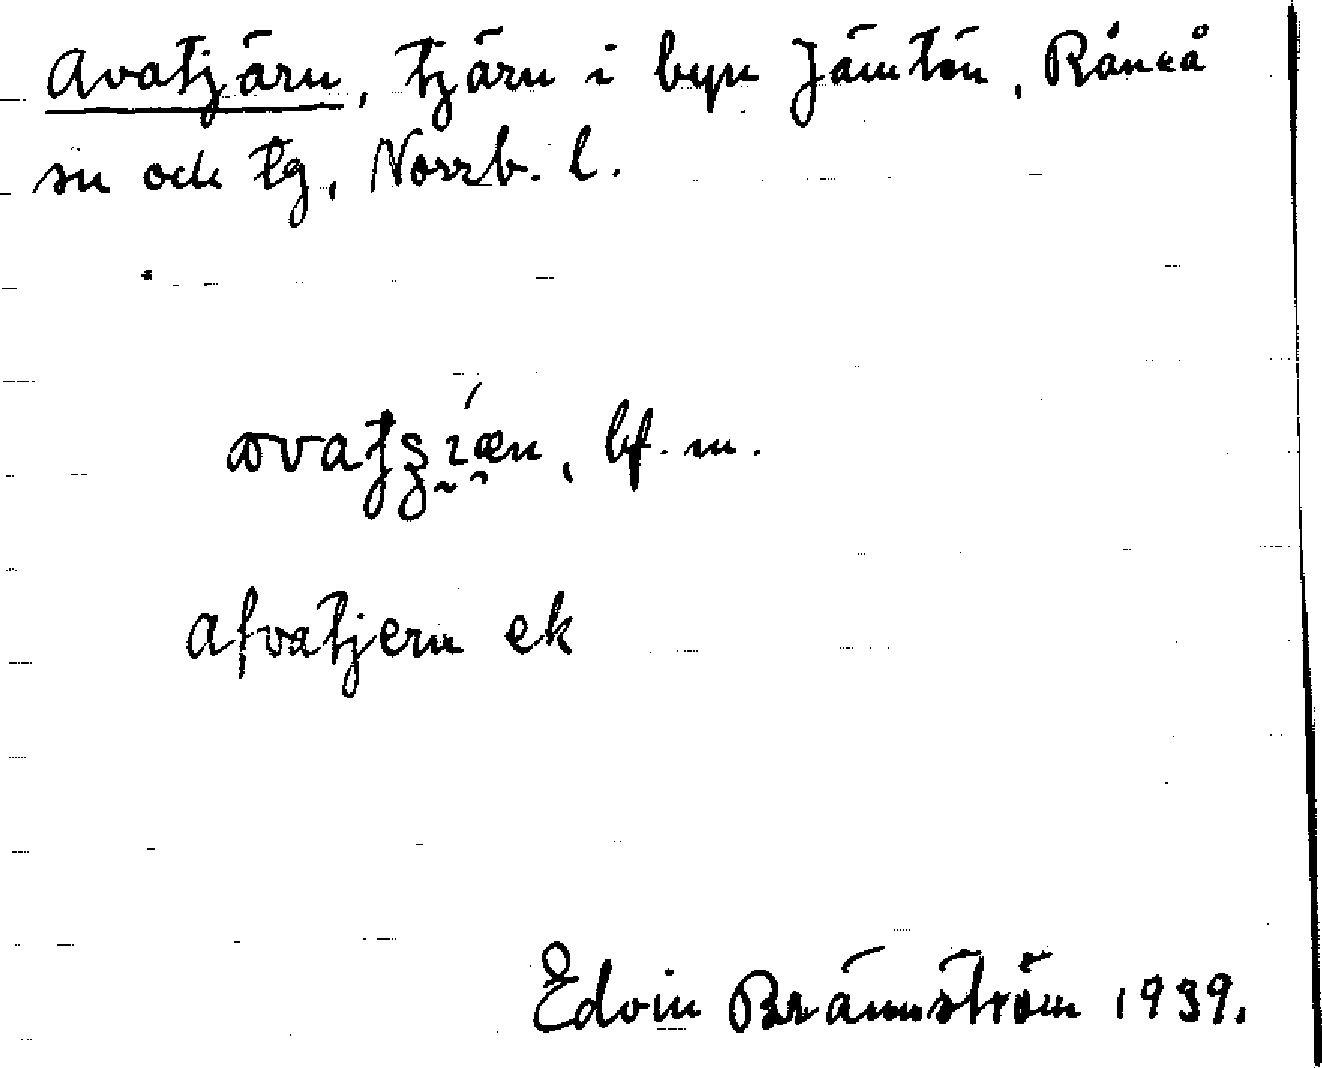 Avatjärn, tjärn i byn Jämtön, Råneå
sn och tg, Norrb. l.
bf. m.
afvatjern ek
Edvin Brännström 1939.